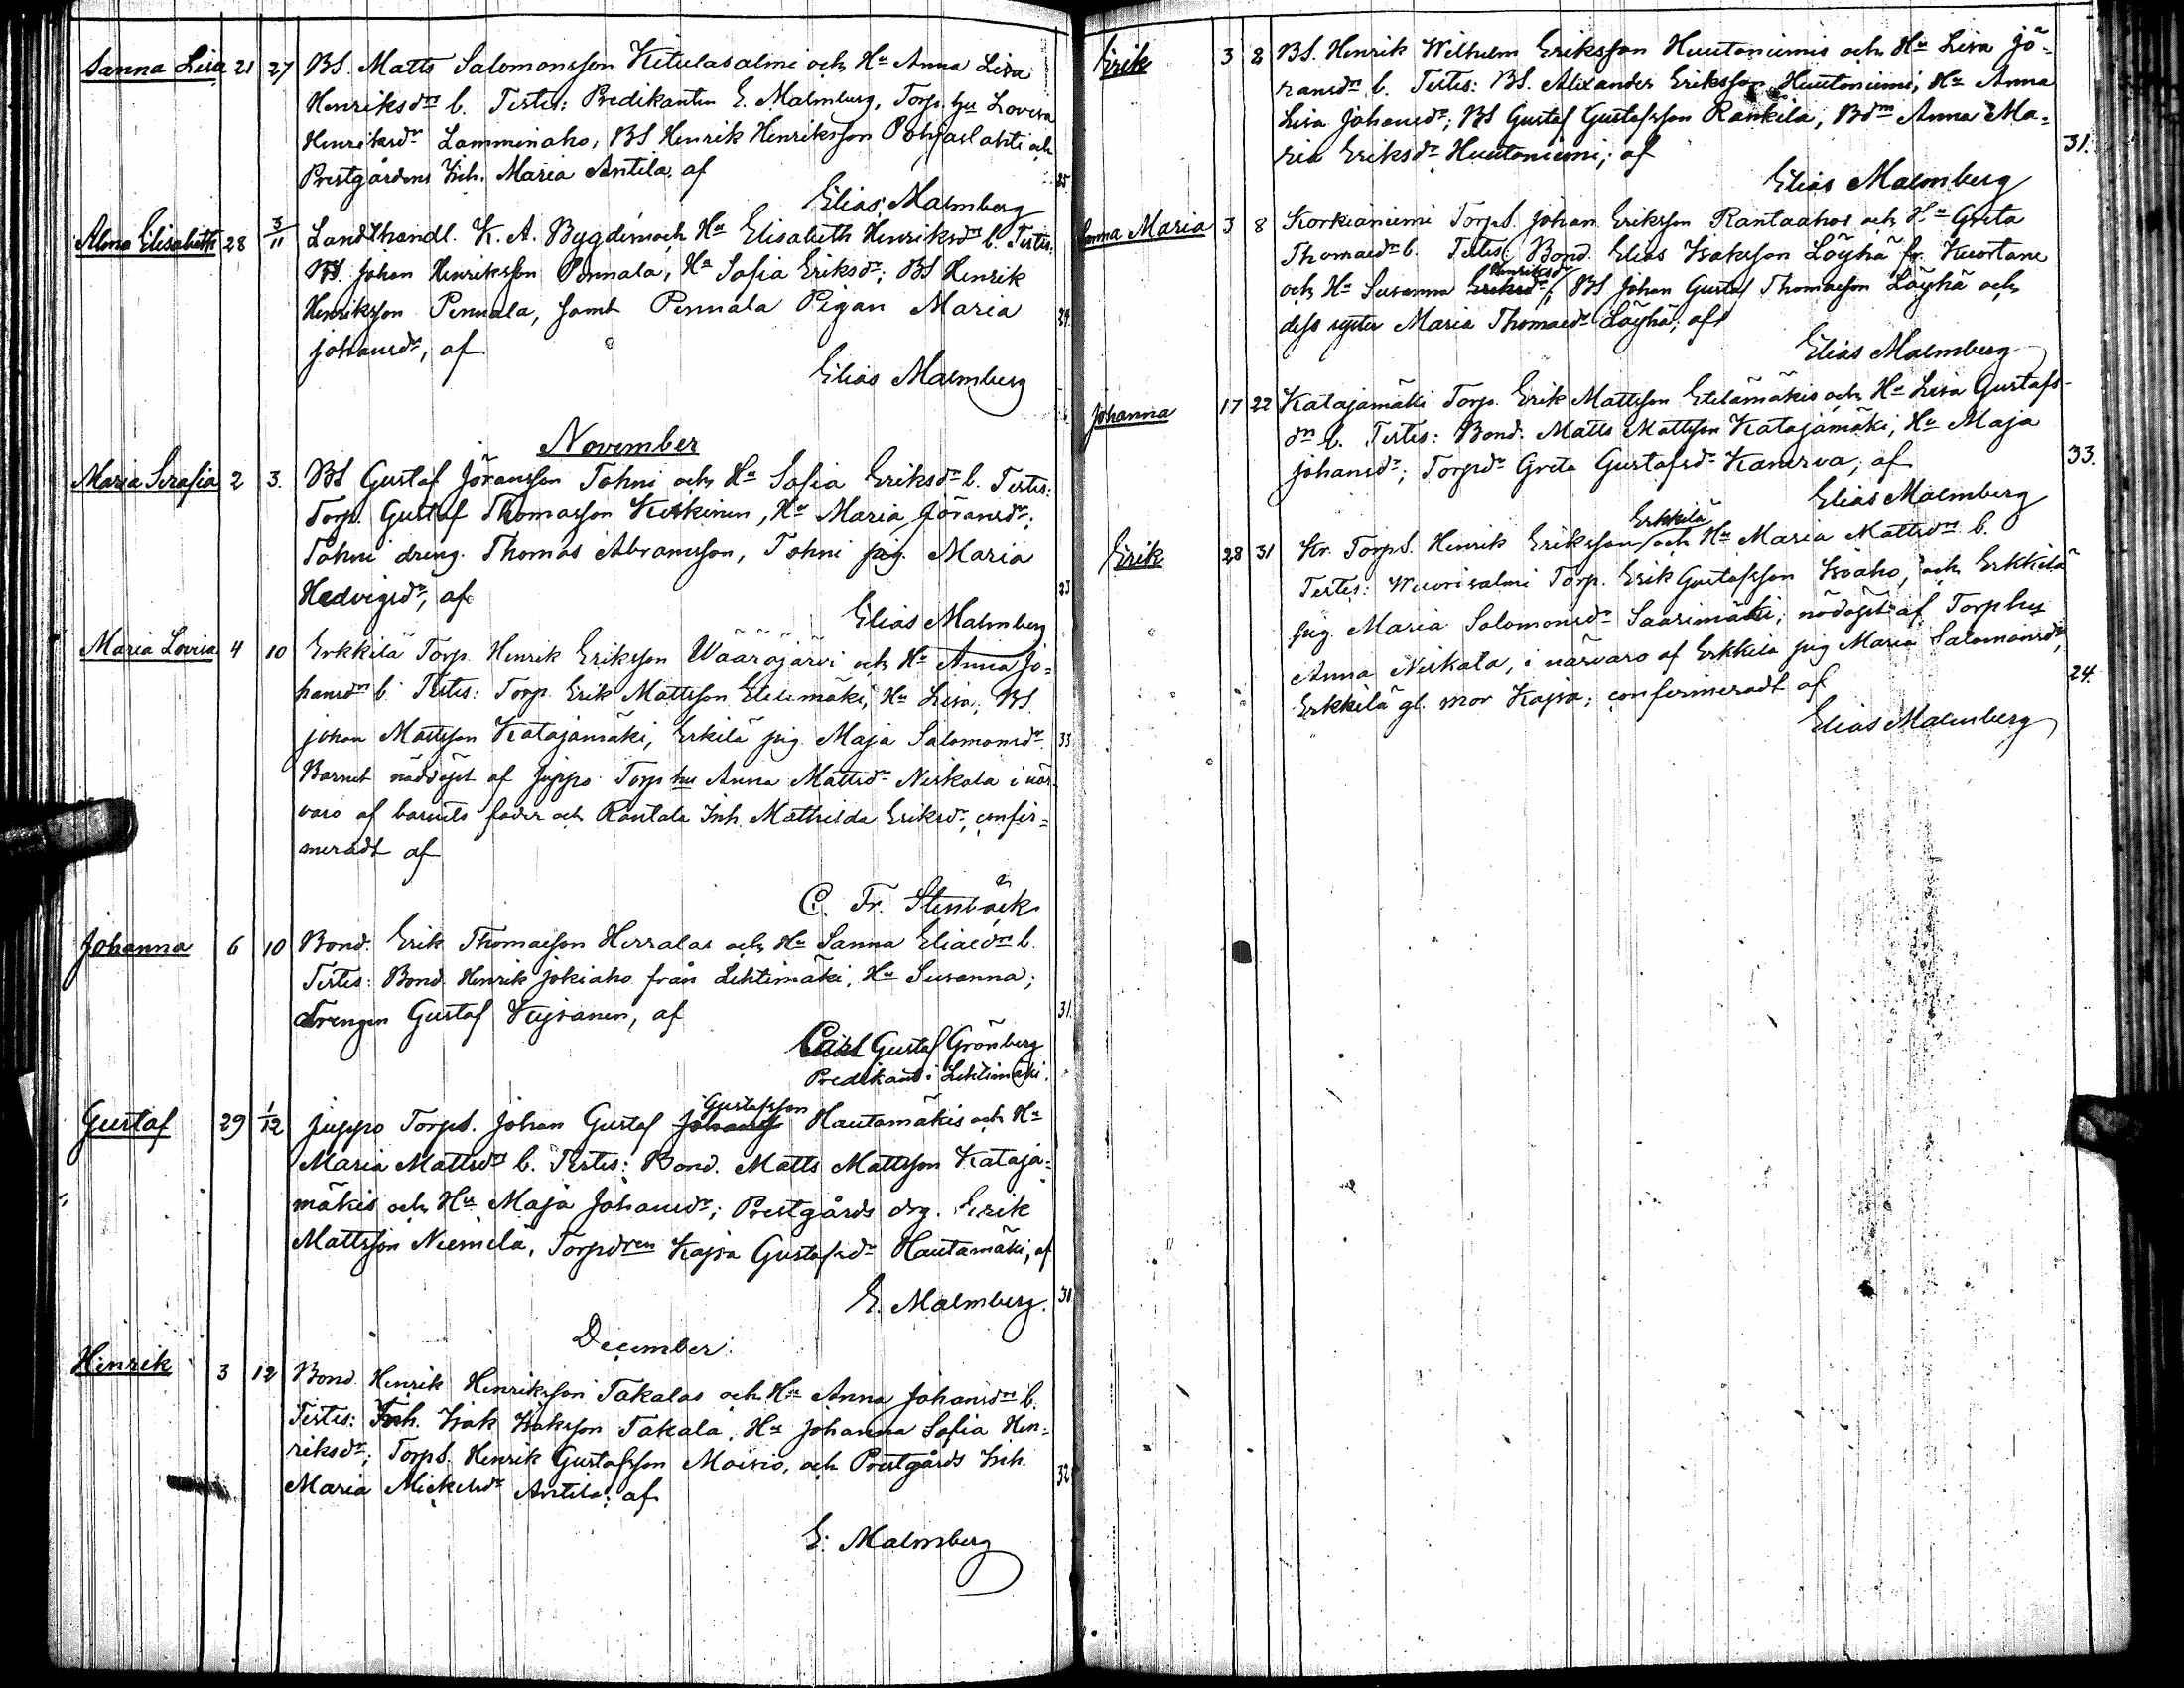 Sanna Lisa 21 27 BS. Matts Salomonsson Kitulasalmi och Hu Anna Lisa
Henriksdrs b. Testes: Predikanten E. Malmberg, Torp. hu Lovisa
Henriksdr Lamminaho, BS Henrik Henriksson Pohjaslahti och
Prestgårdens Inh. Maria Antila, af 25
Elias Malmberg
Alma Elisabeth 28 3/11 Landthandl. K. A. Bygdén och Hu Elisabeth Henriksdrs b. Testes:
BS. Johan Henriksson Pennala, Hu Sofia Eriksdr; BS Henrik
Henriksson Pennala, samt Pennala Pigan Maria 24.
Johansdr, af
Elias Malmberg
November
Maria Serafia 2 3. BS Gustaf Jöransson Tohni och Hu Sofia Eriksdrs b. Testes:
Torp. Gustaf Thomasson Keskinen, Hu Maria Jöransdr;
Tohni dreng. Thomas Abramsson, Tohni pig. Maria
Hedvigsdr, af 23
Elias Malmberg
Maria Lovisa 4 10 Erkkilä Torp. Henrik Eriksson Wääräjärvi och Hu Anna Jo=
hansdrs b. Testes: Torp. Erik Mattsson Etelämäki, Hu Lisa; BS.
Johan Mattsson Katajamäki, Erkilä pig. Maja Salomonsdr. 33
Barnet nöddöpt af Juppo Torp hu Anna Mattsdr Niskala i när=
varo af barnets fader och Rantala Inh. Mathilda Eriksdr, confir=
meradt af
C. Fr. Stenbäck
Johanna 6 10 Bond. Erik Thomasson Herralas och Hu Sanna Eliaedrs b.
Testes: Bond. Henrik Jokiaho från Lehtimäki, Hu Susanna;
Drengen Gustaf Kujvanen, af 31.
Carl Gustaf Grönberg
Predikant i Lehtimäki.
Gustaf 29 1/12 Juppo TorpS. Johan Gustaf Johans Gustafsson Hautamäkis och Hu
Maria Mattsdrs b. Testes: Bond. Matts Mattsson Kataja=
mäkis och Hu Maja Johansdr; Prestgårds drg. Erik
Mattsson Niemelä, Torpdren Kajsa Gustafsdr Hautamäki, af
E. Malmberg. 31
December.
Henrik 3 12 Bond. Henrik Henriksson Takalas och Hu Anna Johansdrs b.
Testes: Inh. Isak Isaksson Takala, Hu Johanna Sofia Hen=
riksdr; TorpS. Henrik Gustafsson Moisio, och Prestgårds Inh.
Maria Mickelsdr Antila; af 32
E. Malmberg
Erik 3 8 BS. Henrik Wilhelm Eriksson Huutoniemis och Hu Lisa Jö=
ransdrs b. Testes: BS. Alexander Eriksson Huutoniemi, Hu Anna
Lisa Johansdr; BS Gustaf Gustafsson Rankila, Bdrn Anna Ma=
ria Eriksdr Huutoniemi; af 31.
Elias Malmberg
Sanna Maria 3 8 Korkianiemi TorpS. Johan Eriksson Rantaahos och Hu Greta
Thomaedrs b. Testes: Bond. Elias Isaksson Löyhä fr. Kuortane
och Hu Susanna Eriksdr Henriksdr; BS Johan Gustaf Thomasson Löyhä och
dess syster Maria Thomaedr Löyhä; af
Elias Malmberg
Johanna 17 22 Katajamäki Torp. Erik Mattsson Etelämäkis och Hu Lisa Gustafs-
drs b. Testes: Bond. Matts Mattsson Katajamäki, Hu Maja
Johansdr; Torpdr Greta Gustafsdr Kanerva; af 33.
Elias Malmberg
Erik 28 31 Kr. TorpS. Henrik Eriksson Erkkilä och Hu Maria Mattsdrs b.
Testes: Wuorisalmi Torp. Erik Gustafsson Isoaho, och Erkkilä
pig. Maria Salomonsdr Saarimäki; nöddöpt af Torp hus
Anna Niskala, i närvaro af Erkkilä pig Maria Salomonsdr,
Erkkilä gl. mor Kajsa; confirmeradt af 24.
Elias Malmberg